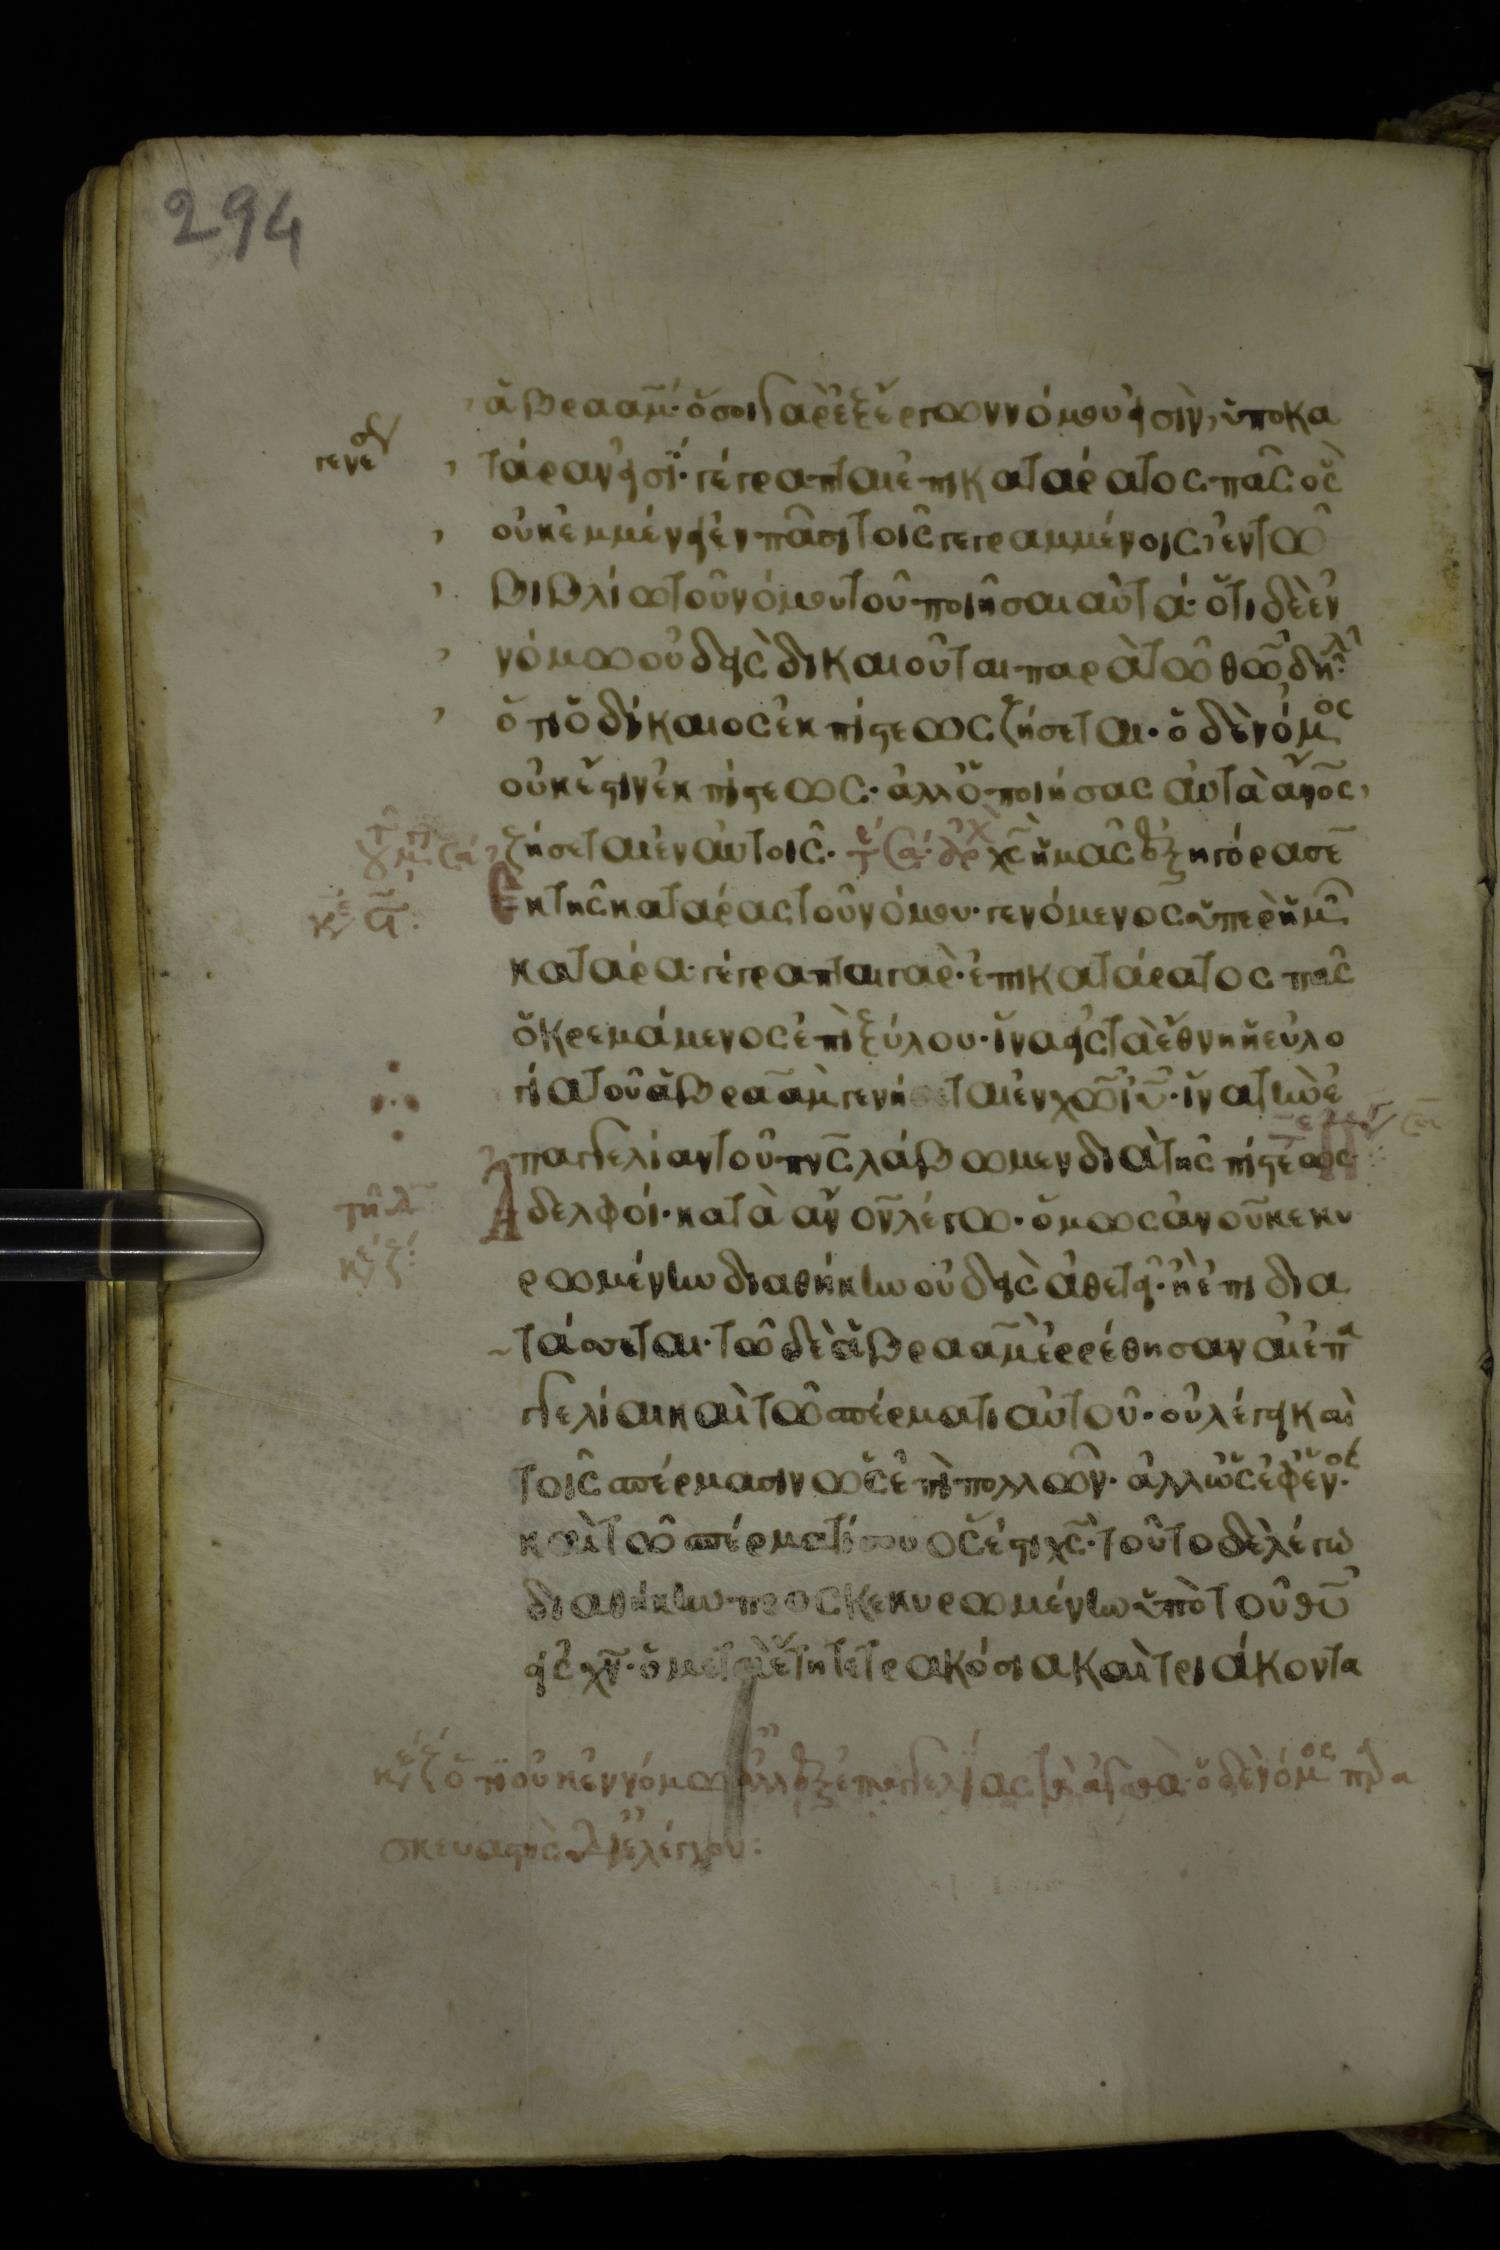 294
ἀβρααμ· ὅσοι γὰρ ἐξ ἔργων νόμου εἰσὶν, ὑπὸ κα
τάραν εἰσί· γέγραπται ἐπικατάρατος πᾶς ὃς
οὐκ ἐμμένει ἐν πᾶσι τοῖς γεγραμμένοις ἐν τῶ
βιβλίω τοῦ νόμου τοῦ ποιῆσαι αὐτά· ὅτι δὲ ἐν
νόμω οὐδεὶς δικαιοῦται παρὰ τῶ θω δηλ
ὅτι ὁ δίκαιος ἐκ πίστεως ζήσεται· ὁ δὲ νόμος
οὐκ ἔστιν ἐκ πίστεως· ἀλλ ὁ ποιήσας αὐτὰ ανος
ζήσεται ἐν αὐτοῖς· χς ἡμᾶς ἐξηγόρασε
Ἐκ τῆς κατάρας τοῦ νόμου· γενόμενος ὑπὲρ ἡμῶν
κατάρα· γέγραπται γὰρ· ἐπικατάρατος πᾶς
ὁ κρεμάμενος ἐπὶ ξύλου· ἵνα εἰς τὰ ἔθνη ἡ εὐλο
γία τοῦ ἀβρααμ γένηται ἐν χω ιυ· ἵνα τὴν ἐ
παγγελίαν τοῦ πνς λάβωμεν διὰ τῆς πίστεως
Ἀδελφοί· κατὰ ανον λέγω· ὅμως ανου κεκυ
ρωμένην διαθήκην οὐδεὶς ἀθετεῖ· ἢ ἐπιδια
τάσσεται· τῶ δὲ ἀβρααμ ἐρρέθησαν αἱ ἐπα
γγελίαι καὶ τῶ σπέρματι αὐτοῦ· οὐ λέγει καὶ
τοῖς σπέρμασιν ὡς ἐπὶ πολλῶν· ἀλλ ὡς ἐφ ἑνός·
καὶ τῶ σπέρματί σου ὅς ἐστι χς· τοῦτο δὲ λέγω
διαθήκην προσκεκυρωμένην ὑπὸ τοῦ θυ
εἰς χν· ὁ μετὰ ἔτη τετρακόσια καὶ τριάκοντα
ὅτι οὐκ ἐν νόμω ἀλλ ἐξ ἐπαγγελίας τὰ ἀγαθὰ· ὁ δὲ νόμος πα